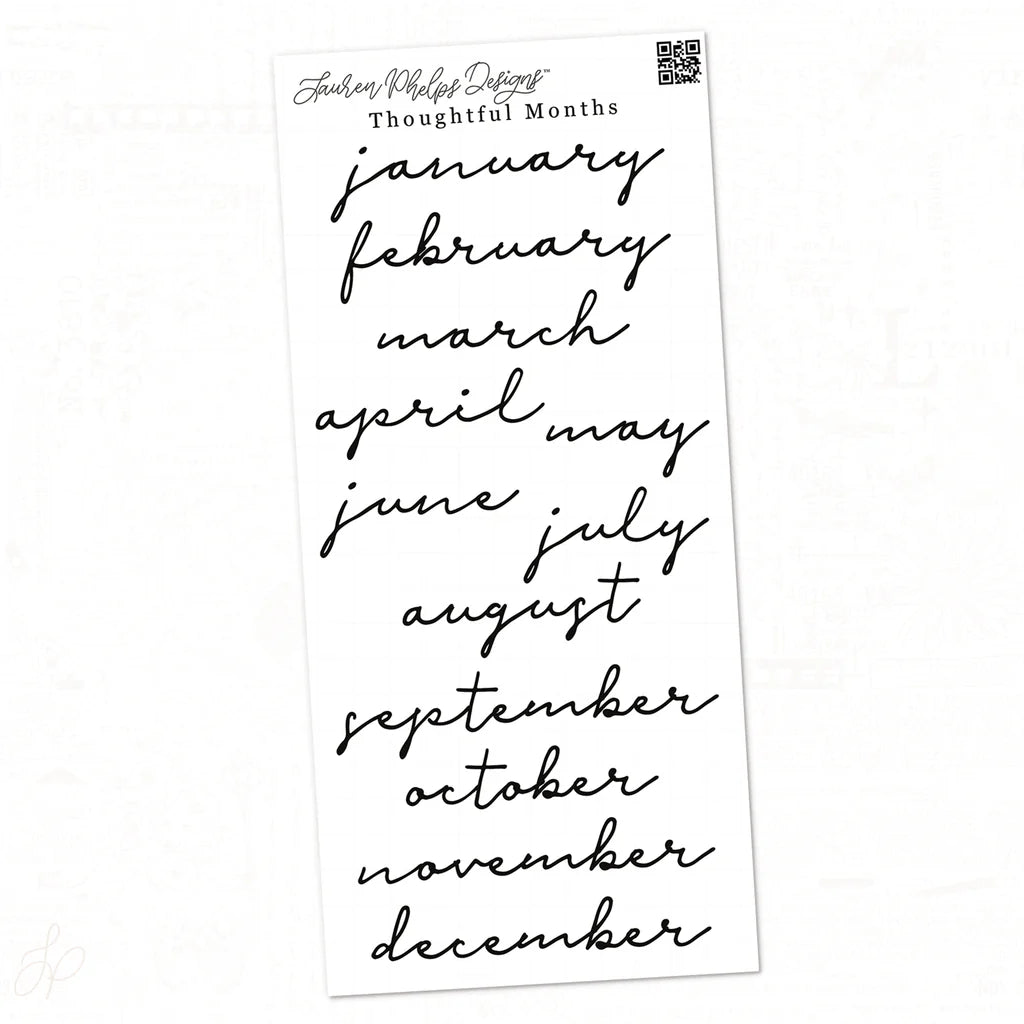 Lauren Phelps Designs™
Thoughtful Months
january
february
march
april may
june
july
august
september
october
november
december
LP